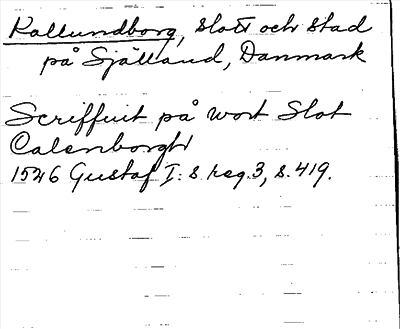 Kallundborg, slott och stad
på Själland, Danmark
Scriffuit på wort Slot
Calenborgh
1526 Gustaf I:s reg. 3, s. 419.